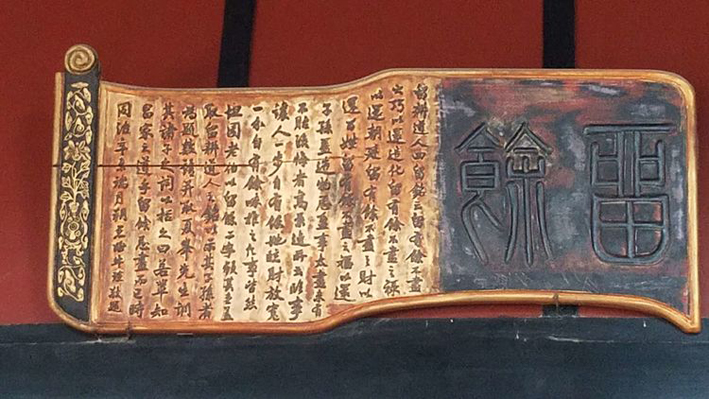 留餘
留耕道人四留銘云留有餘不盡
之巧以還造化留有餘不盡之祿
以還朝廷留有餘不盡之財以
還百姓留有餘不盡之福以還
子孫蓋造物忌盈事太盡未有
不貽後悔者高景逸所云臨事
讓人一步自有餘地臨財放寬
一分自有餘味推之凡事皆然
坦園老伯以留餘二字顏其堂蓋
取留耕道人之銘以示其子孫者
為題數語并取夏峰先生訓
其諸子之詞以括之曰若輩知
昌家之道乎留餘忌盡而已時
同治辛未端月朔愚侄牛瑄敬題